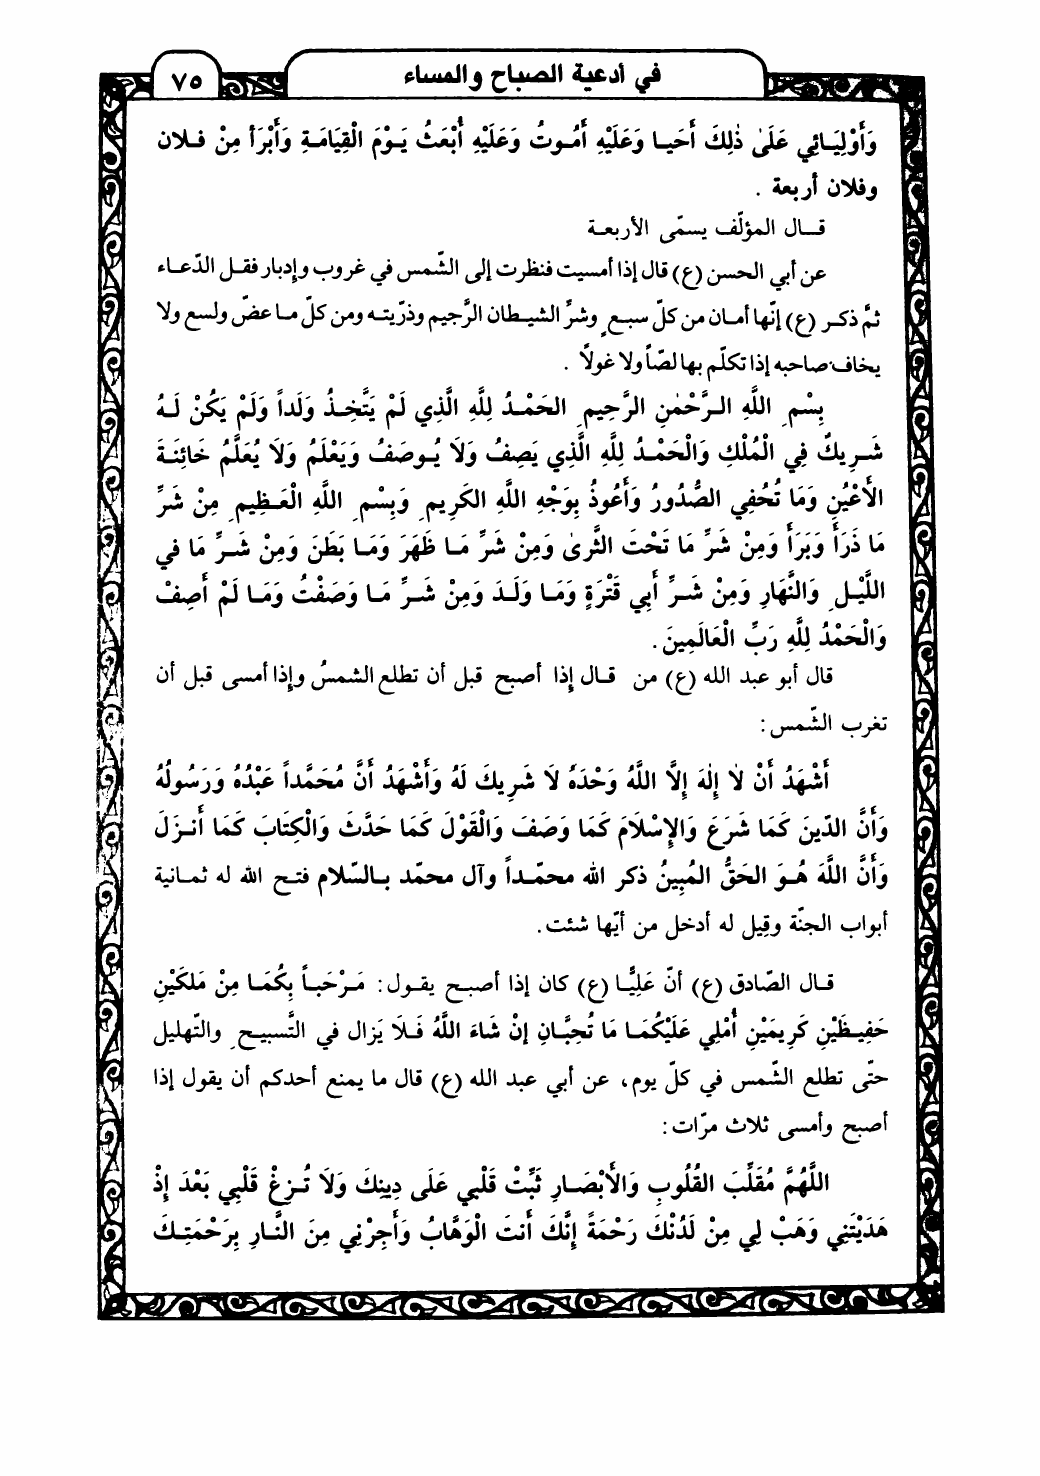 في أدعية الصباح والمساء
٧٥
وَأَوْلِيَـائِي عَلَىٰ ذٰلِكَ أَحَيـا وَعَلَيْهِ أَمُـوتُ وَعَلَيْهِ أُبْعَثُ يَـوْمَ الْقِيَامَـةِ وَأَبْرَأ مِنْ فـلان
وفلان أربعة .
قـال المؤلّف يسمّى الأربعـة
عن أبي الحسن (ع) قال إذا أمسيت فنظرت إلى الشّمس في غروب وإدبار فقـل الدّعـاء
ثمَّ ذكـر (ع) إنّها أمـان من كلّ سبـع وشرَّ الشيـطان الرَّجيم وذرّيتـه ومن كلّ مـا عضّ ولسع ولا
يخاف صاحبه إذا تكلّم بها لصّاً ولا غولاً .
بِسْمِ اللَّهِ الـرَّحْمٰنِ الرَّحِيمِ الحَمْـدُ لِلَّهِ الَّذِي لَمْ يَتَّخِـذُ وَلَداً وَلَمْ يَكُنْ لَـهُ
شَـرِيكٌ فِي الْمُلْكِ وَالْحَمْـدُ لِلَّهِ الَّذِي يَصِفُ وَلَا يُـوصَفُ وَيَعْلَمُ وَلَا يُعَلَّمُ خَائِنَـةَ
الأَعْيُنِ وَمَا تُخْفِي الصُّدُورُ وَأَعُوذُ بِوَجْهِ اللَّهِ الكَرِيمِ وَبِسْمِ اللَّهِ الْعَـظِيمِ مِنْ شَرِّ
مَا ذَرَأَ وَبَرَأَ وَمِنْ شَرِّ مَا تَحْتَ الثَّرىٰ وَمِنْ شَرِّ مَـا ظَهَرَ وَمَـا بَطَنَ وَمِنْ شَـرِّ مَا في
اللَّيْـلِ وَالنَّهَارِ وَمِنْ شَـرِّ أَبِي قَتْرَةٍ وَمَـا وَلَـدَ وَمِنْ شَـرِّ مَـا وَصَفْتُ وَمَـا لَمْ أَصِفْ
وَالْحَمْدُ لِلَّهِ رَبِّ الْعَالَمِينَ.
قال أبو عبد الله (ع) من قـال إذا أصبح قبل أن تطلع الشمسُ وإذا أمسى قبل أن
تغرب الشّمس:
أَشْهَدُ أَنْ لَا إِلٰهَ إِلَّا اللَّهُ وَحْدَهُ لَا شَرِيكَ لَهُ وَأَشْهَدُ أَنَّ مُحَمَّداً عَبْدُهُ وَرَسُولُهُ
وَأَنَّ الدّينَ كَمَا شَرَعَ وَالإِسْلَامَ كَمَا وَصَفَ وَالْقَوْلَ كَمَا حَدَّثَ وَالْكِتَابَ كَمَا أَنـزَلَ
وَأَنَّ اللَّهَ هُـوَ الحَقُّ المُبِينُ ذكر الله محمّـداً وآل محمّد بـالسّلام فتـح الله له ثمـانية
أبواب الجنّة وقِيل له أدخل من أيّها شئت.
قـال الصّادق (ع) أنّ عَلِيَّـا (ع) كان إذا أصبـح يقـول: مَـرْحَبـاً بِكُمَـا مِنْ مَلَكَيْنِ
حَفِيـظَيْنِ كَرِيمَيْنِ أُمْلِي عَلَيْكُمَـا مَا تُحِبَّـانِ إنْ شَاءَ اللَّهُ فَـلَا يَزال في التَّسبيـح والتّهليل
حتّى تطلع الشّمس في كلّ يوم، عن أبي عبد الله (ع) قال ما يمنع أحدكم أن يقول إذا
أصبح وأمسى ثلاث مرّات:
اللَّهُمَّ مُقَلِّبَ القُلُوبِ وَالأَبْصَـارِ ثَبِّتْ قَلْبي عَلَى دِينِكَ وَلَا تُـزِغْ قَلْبِي بَعْدَ إذْ
هَدَيْتَنِي وَهَبْ لِي مِنْ لَدُنْكَ رَحْمَةً إِنَّكَ أَنتَ الْوَهَّابُ وَأَجِرْنِي مِنَ النَّـارِ بِرَحْمَتِـكَ